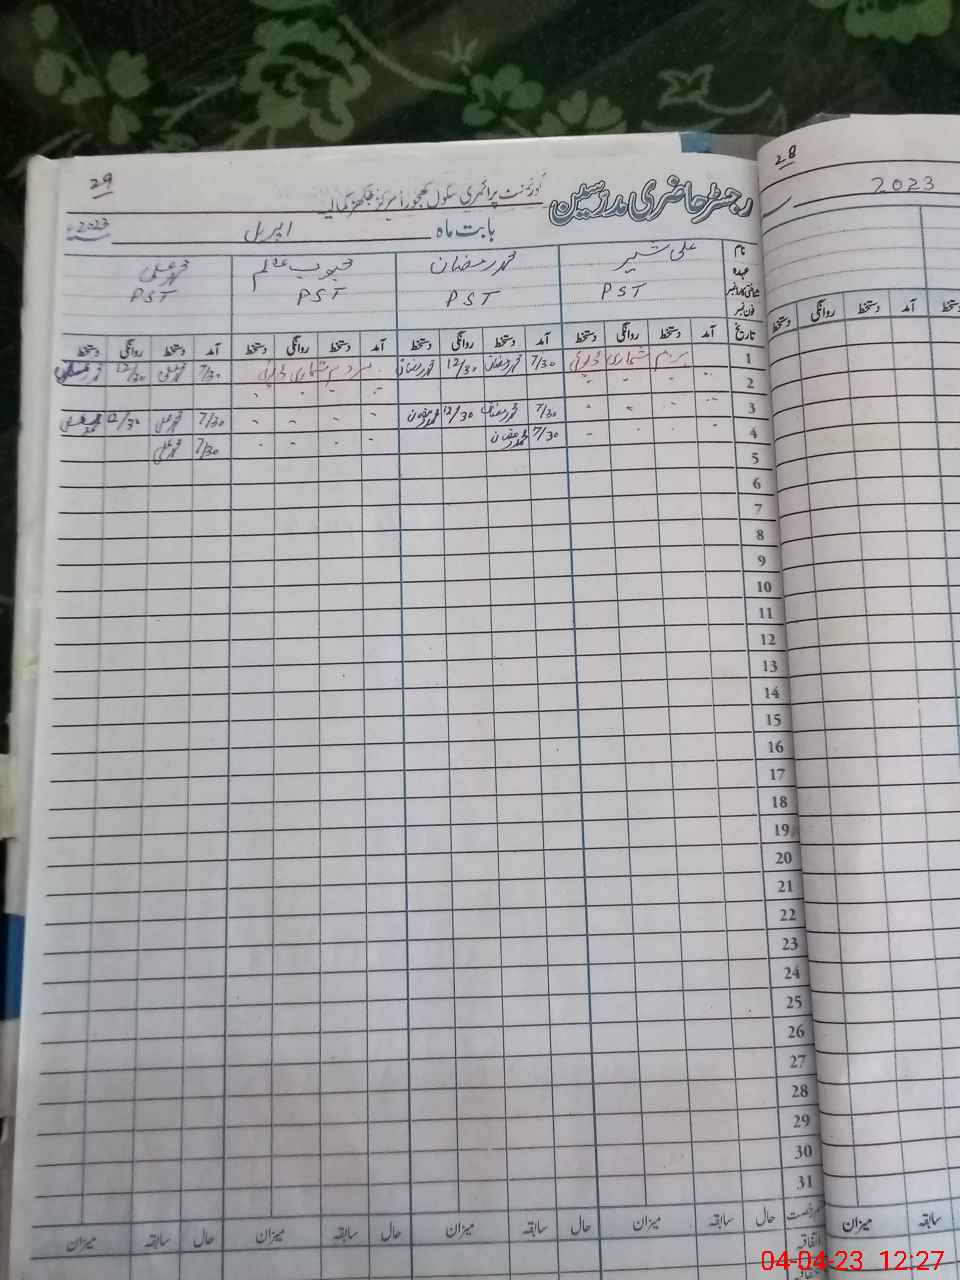 29
رجسٹر حاضری مدرسین گورنمنٹ پرائمری سکول کھجورا مرکز
بابت ماہ اپریل 2023ء
نام علی شیر محمد رمضان محبوب عالم محمد علی
عہدہ PST PST PST PST
شناختی کارڈ نمبر
فون نمبر
تاریخ آمد دستخط روانگی دستخط آمد دستخط روانگی دستخط آمد دستخط روانگی دستخط آمد دستخط روانگی دستخط
1 مردم شماری ڈیوٹی 7/30 محمد رمضان 12/30 محمد رمضان مردم شماری ڈیوٹی 7/30 محمد علی 12/30 محمد علی
2
3 7/30 محمد رمضان 12/30 محمد رمضان 7/30 محمد علی 12/30 محمد علی
4 7/30 محمد رمضان 7/30 محمد علی
5
6
7
8
9
10
11
12
13
14
15
16
17
18
19
20
21
22
23
24
25
26
27
28
29
30
31
رخصت حال سابقہ میزان حال سابقہ میزان حال سابقہ میزان حال سابقہ میزان
اتفاقیہ
28
2023
دستخط آمد دستخط روانگی دستخط
سابقہ میزان
04-04-23 12:27